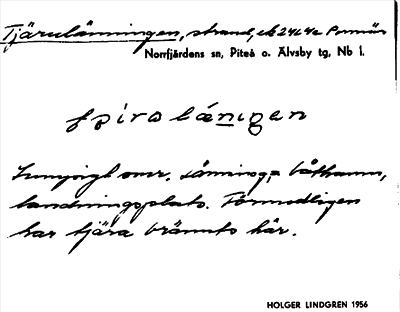 Tjärulänningen, strand, ek 24L4e Porsnäs
Norrfjärdens sn, Piteå o. Älvsby tg, Nb l.
omr. lämning, båthamn,
landningsplats. Förmodligen
har tjära bränts här.
HOLGER LINDGREN 1956